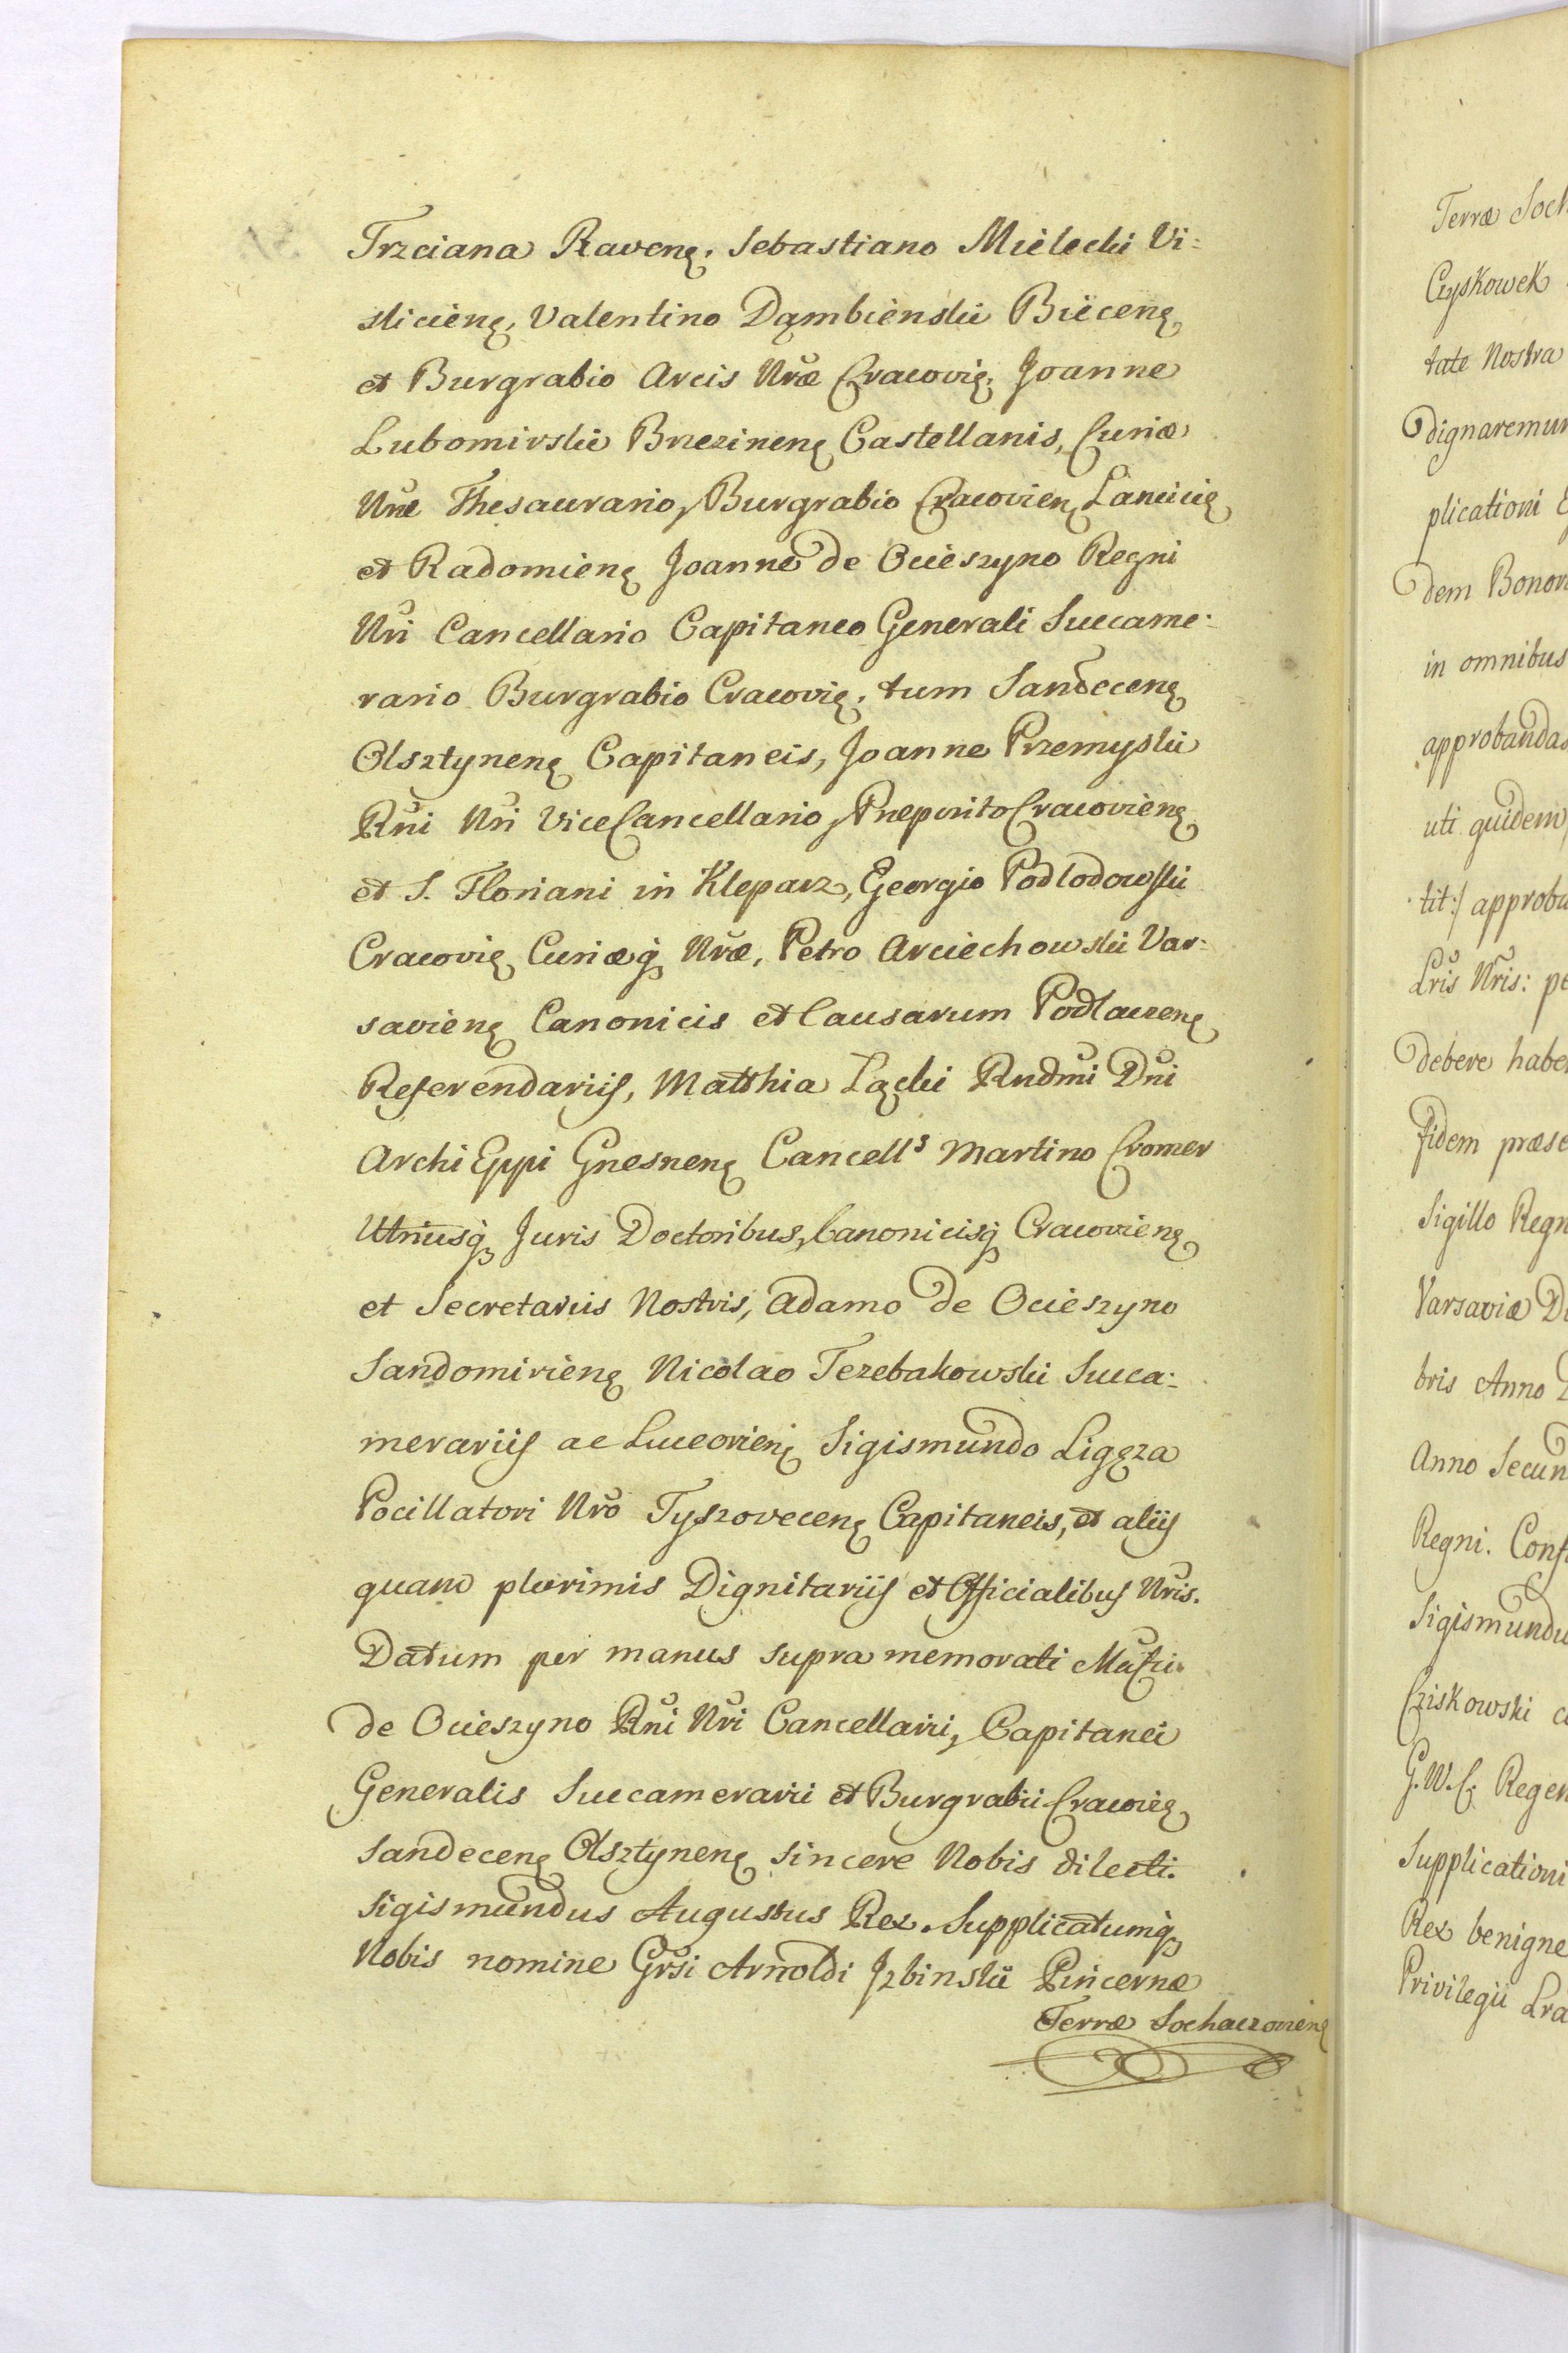 Trzciana Ravenę. Sebastiano Mielecki Vi-
sliciēnę, Valentino Dąmbienski Biecenę,
et Burgrabio Arcis Nræ Cracovię, Joanne
Lubomirski Brzezinenę Castellanis, Curiæ
Nræ Thesaurario, Burgrabio Cracovienę Lancicię
et Radomienę Joanne de Ocieszyno Regni
Nri Cancellario Capitaneo Generali Succame-
rario Burgrabio Cracovię, tum Sandecenę
Olsztynenę Capitaneis, Joanne Przemyski
Rni Nri ViceCancellario, Præposito Cracovienę
et S. Floriani in Kleparz, Georgio Podlodowski
Cracovię Curiæq Nræ, Petro Arciechowski Var-
savienę Canonicis et Causarum Podlacenę
Referendariis, Matthia Łącki Rndmi Dni
ArchiEppi Gnesnenę Cancells Martino Cromer
Utriusq Juris Doctoribus, Canonicisq Cracovienę
et Secretariis Nostris, Adamo de Ocieszyno
Sandomirienę Nicolao Trzebakowski Succa-
merariis ac Lucovienę Sigismundo Ligęza
Pocillatori Nro Tyszovecenę Capitaneis, et aliis
quam plurimis Dignitariis et Officialibus Nris.
Datum per manus supra memorati Mufci
de Ocieszyno Rni Nri Cancellarii, Capitanei
Generalis Succamerarii et Burgrabii Cracvię
Sandecenę Olsztynenę sincere Nobis dilecti.
Sigismundus Augustus Rex. Supplicatumq
Nobis nomine Grsi Arnoldi Jzbinski Pincernæ
Terræ Sochaczovienę
Terræ Soch
Czyskowek
tate Nostra
dignaremur
plicationi
dem Bonor
in omnibus
approbandas
uti quidem
tit:/ approba
Lris Nris: pe
debere habe
fidem præse
Sigillo Regn
Varsaviæ D
bris Anno D
Anno Secun
Regni. Conf
Sigismundu
Cziskowski c
G. W. C. Regen
Supplicationi
Rex benigne
Privilegii Lra